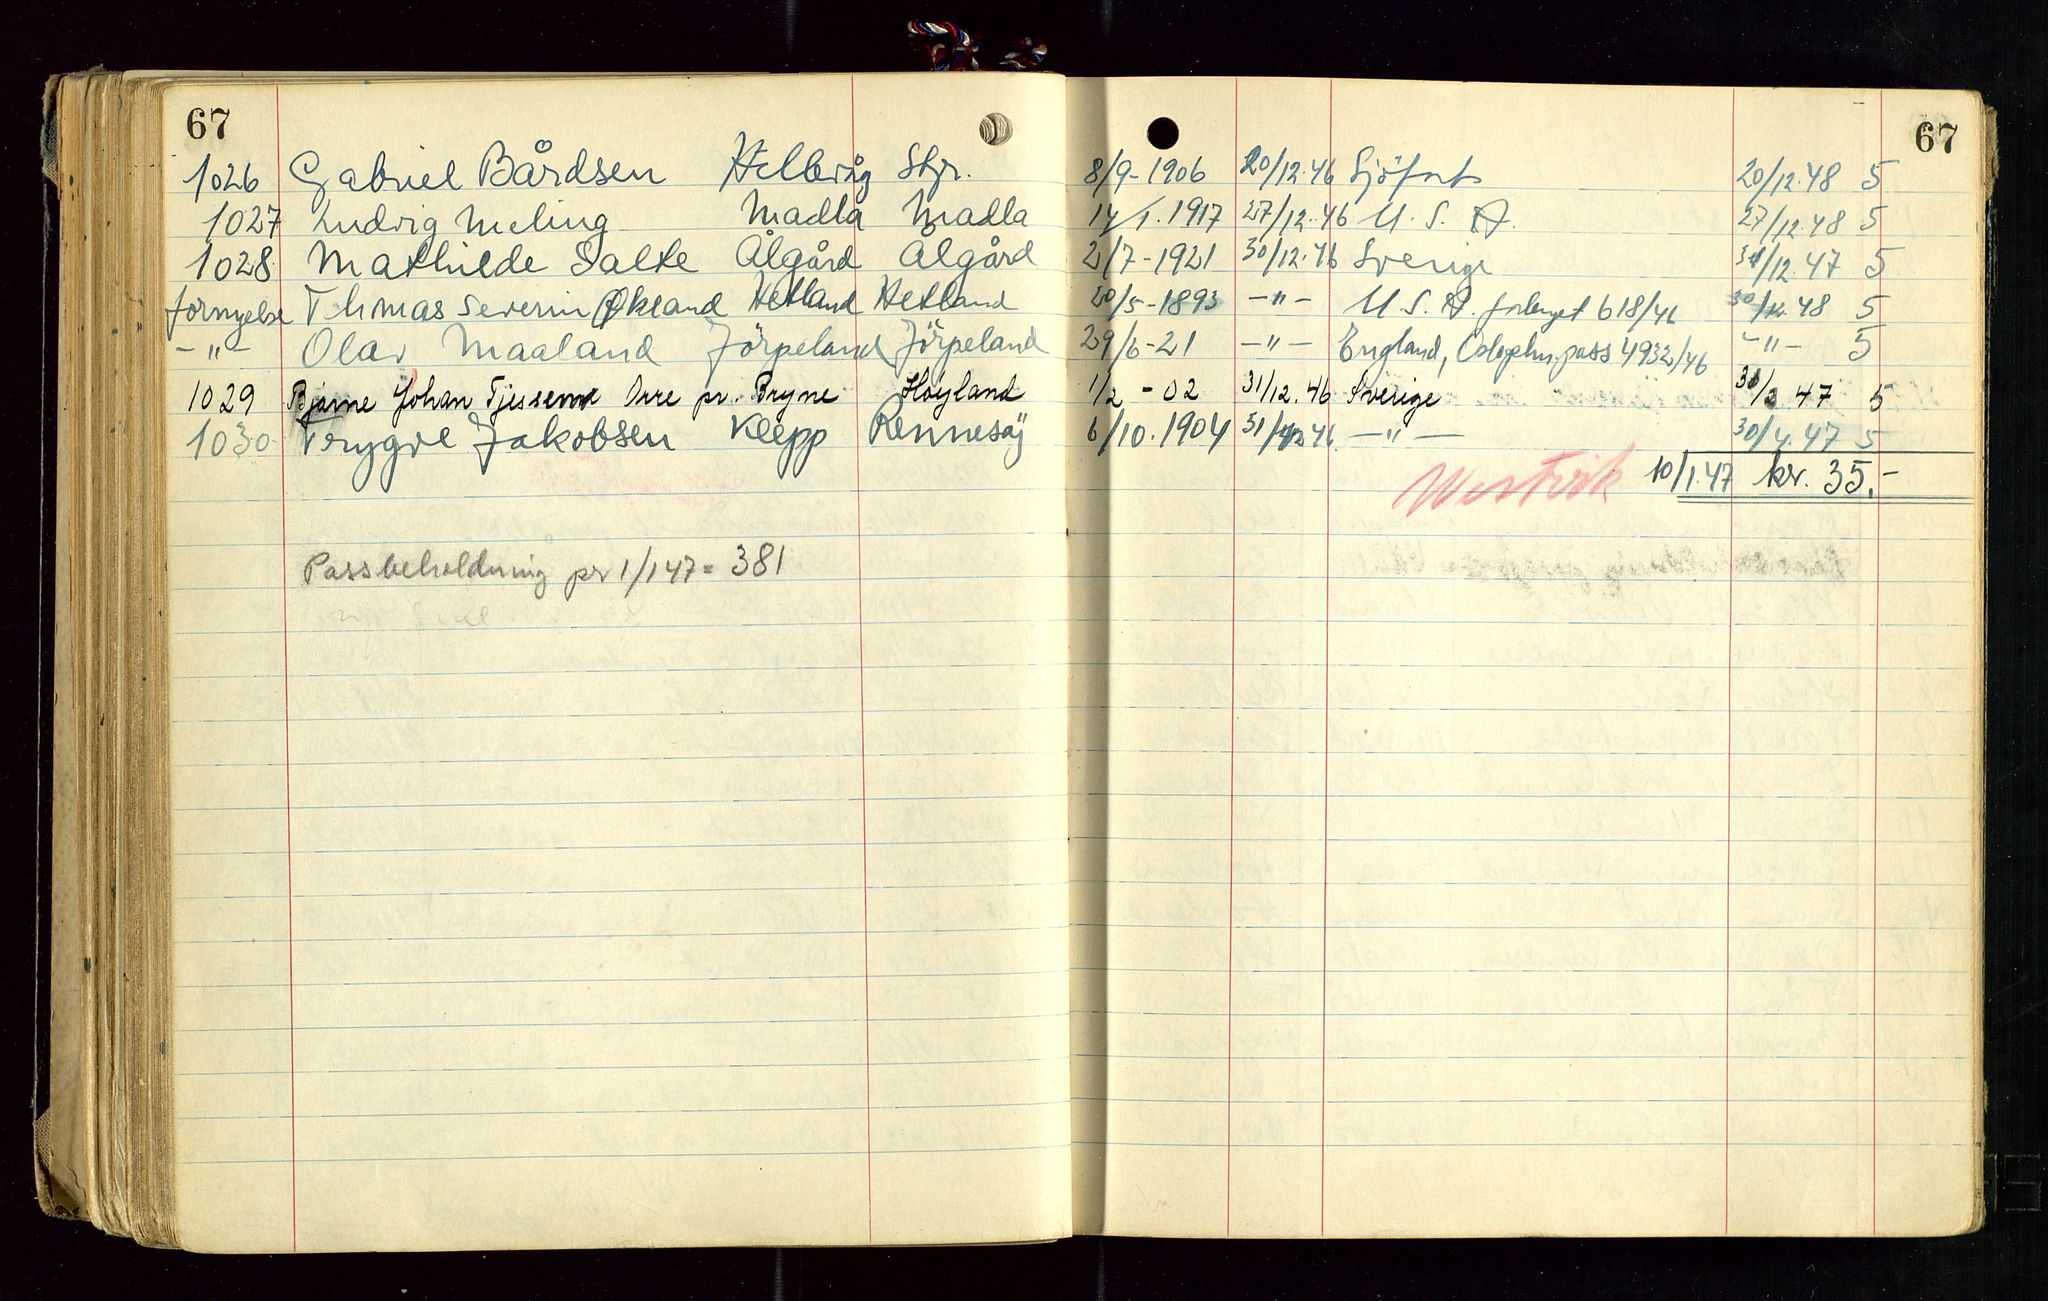 67 67
1026 Gabriel Bårdsen Hellevåg Styr. 8/9-1906 20/12.46 Sjöfart 20/12.48 5
1027 Ludvig Meling Madla Madla 14/1.1917 27/12.46 U.S.A. 27/12.48 5
1028 Mathilde Salte Ålgård Ålgård 2/7-1921 30/12.46 Sverige 31/12.47 5
fornyelse Thmas Severin Økland Hetland Hetland 20/5-1893 -"- U.S.A. forlenget 618/46 30/12.48 5
-"- Olav Maaland Jörpeland Jörpeland 29/6-21 -"- England, pass 4932/46 -"- 5
1029 Bjarne Johan Tjessem Orre pr. Bryne Höyland 1/2-02 31/12.46 Sverige 47 5
1030 Trygve Jakobsen Klepp Rennesöy 6/10.1904 31/12 46 -"- 30/4.47 5
Westvik 10/1.47 kr. 35.-
Passbeholdning pr 1/1 47 = 381